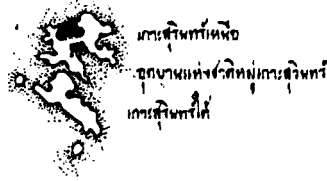 เกาะสุรินทร์เหนือ
อุทยานแห่งชาติหมู่เกาะสุรินทร์
เกาะสุรินทร์ใต้